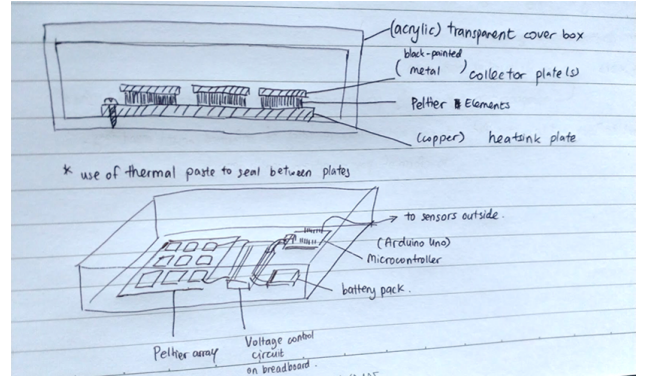 (acrylic) transparent cover box
black-painted
(metal) collector plate(s)
Peltier Elements
(copper) heatsink plate
* use of thermal paste to seal between plates
to sensors outside.
(Arduino Uno)
Microcontroller
battery pack.
Peltier array
Voltage control
circuit
on breadboard.